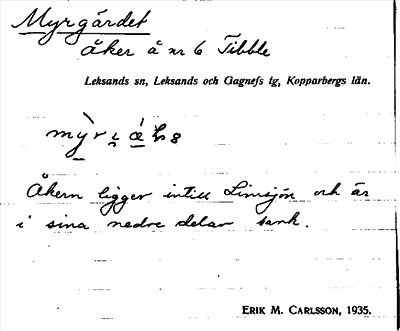 Myrgärdet
åker å nr 6 Tibble
Leksands sn, Leksands och Gagnefs tg, Kopparbergs län.
Åkern ligger intill Limsjön och är
i sina nedre delar sank.
ERIK M. CARLSSON, 1935.